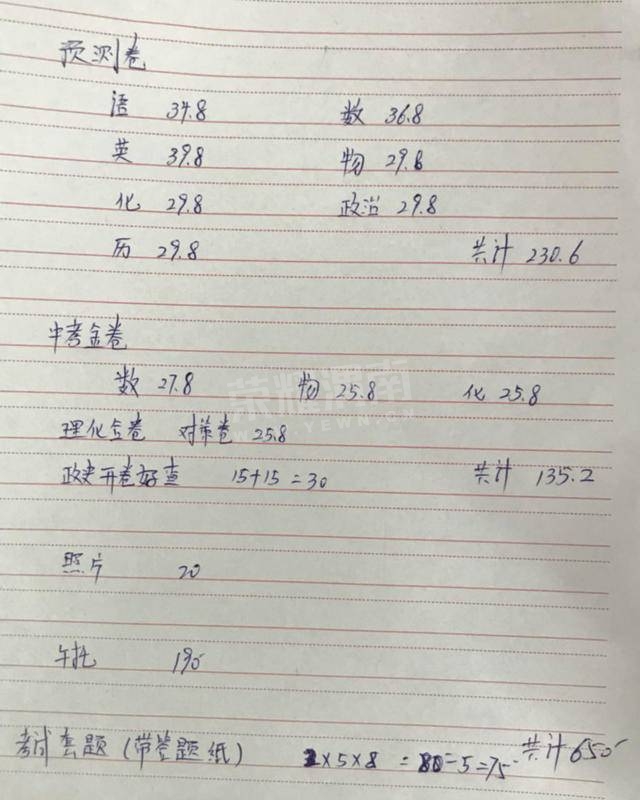 预测卷
语 34.8 数 36.8
英 39.8 物 29.8
化 29.8 政治 29.8
历 29.8 共计 230.6
中考金卷
数 27.8 物 25.8 化 25.8
理化金卷 对策卷 25.8
政史开卷好查 15+15=30 共计 135.2
照片 20
午托 190
考试套题(带答题纸) 2×5×8 = 80-5=75 共计650